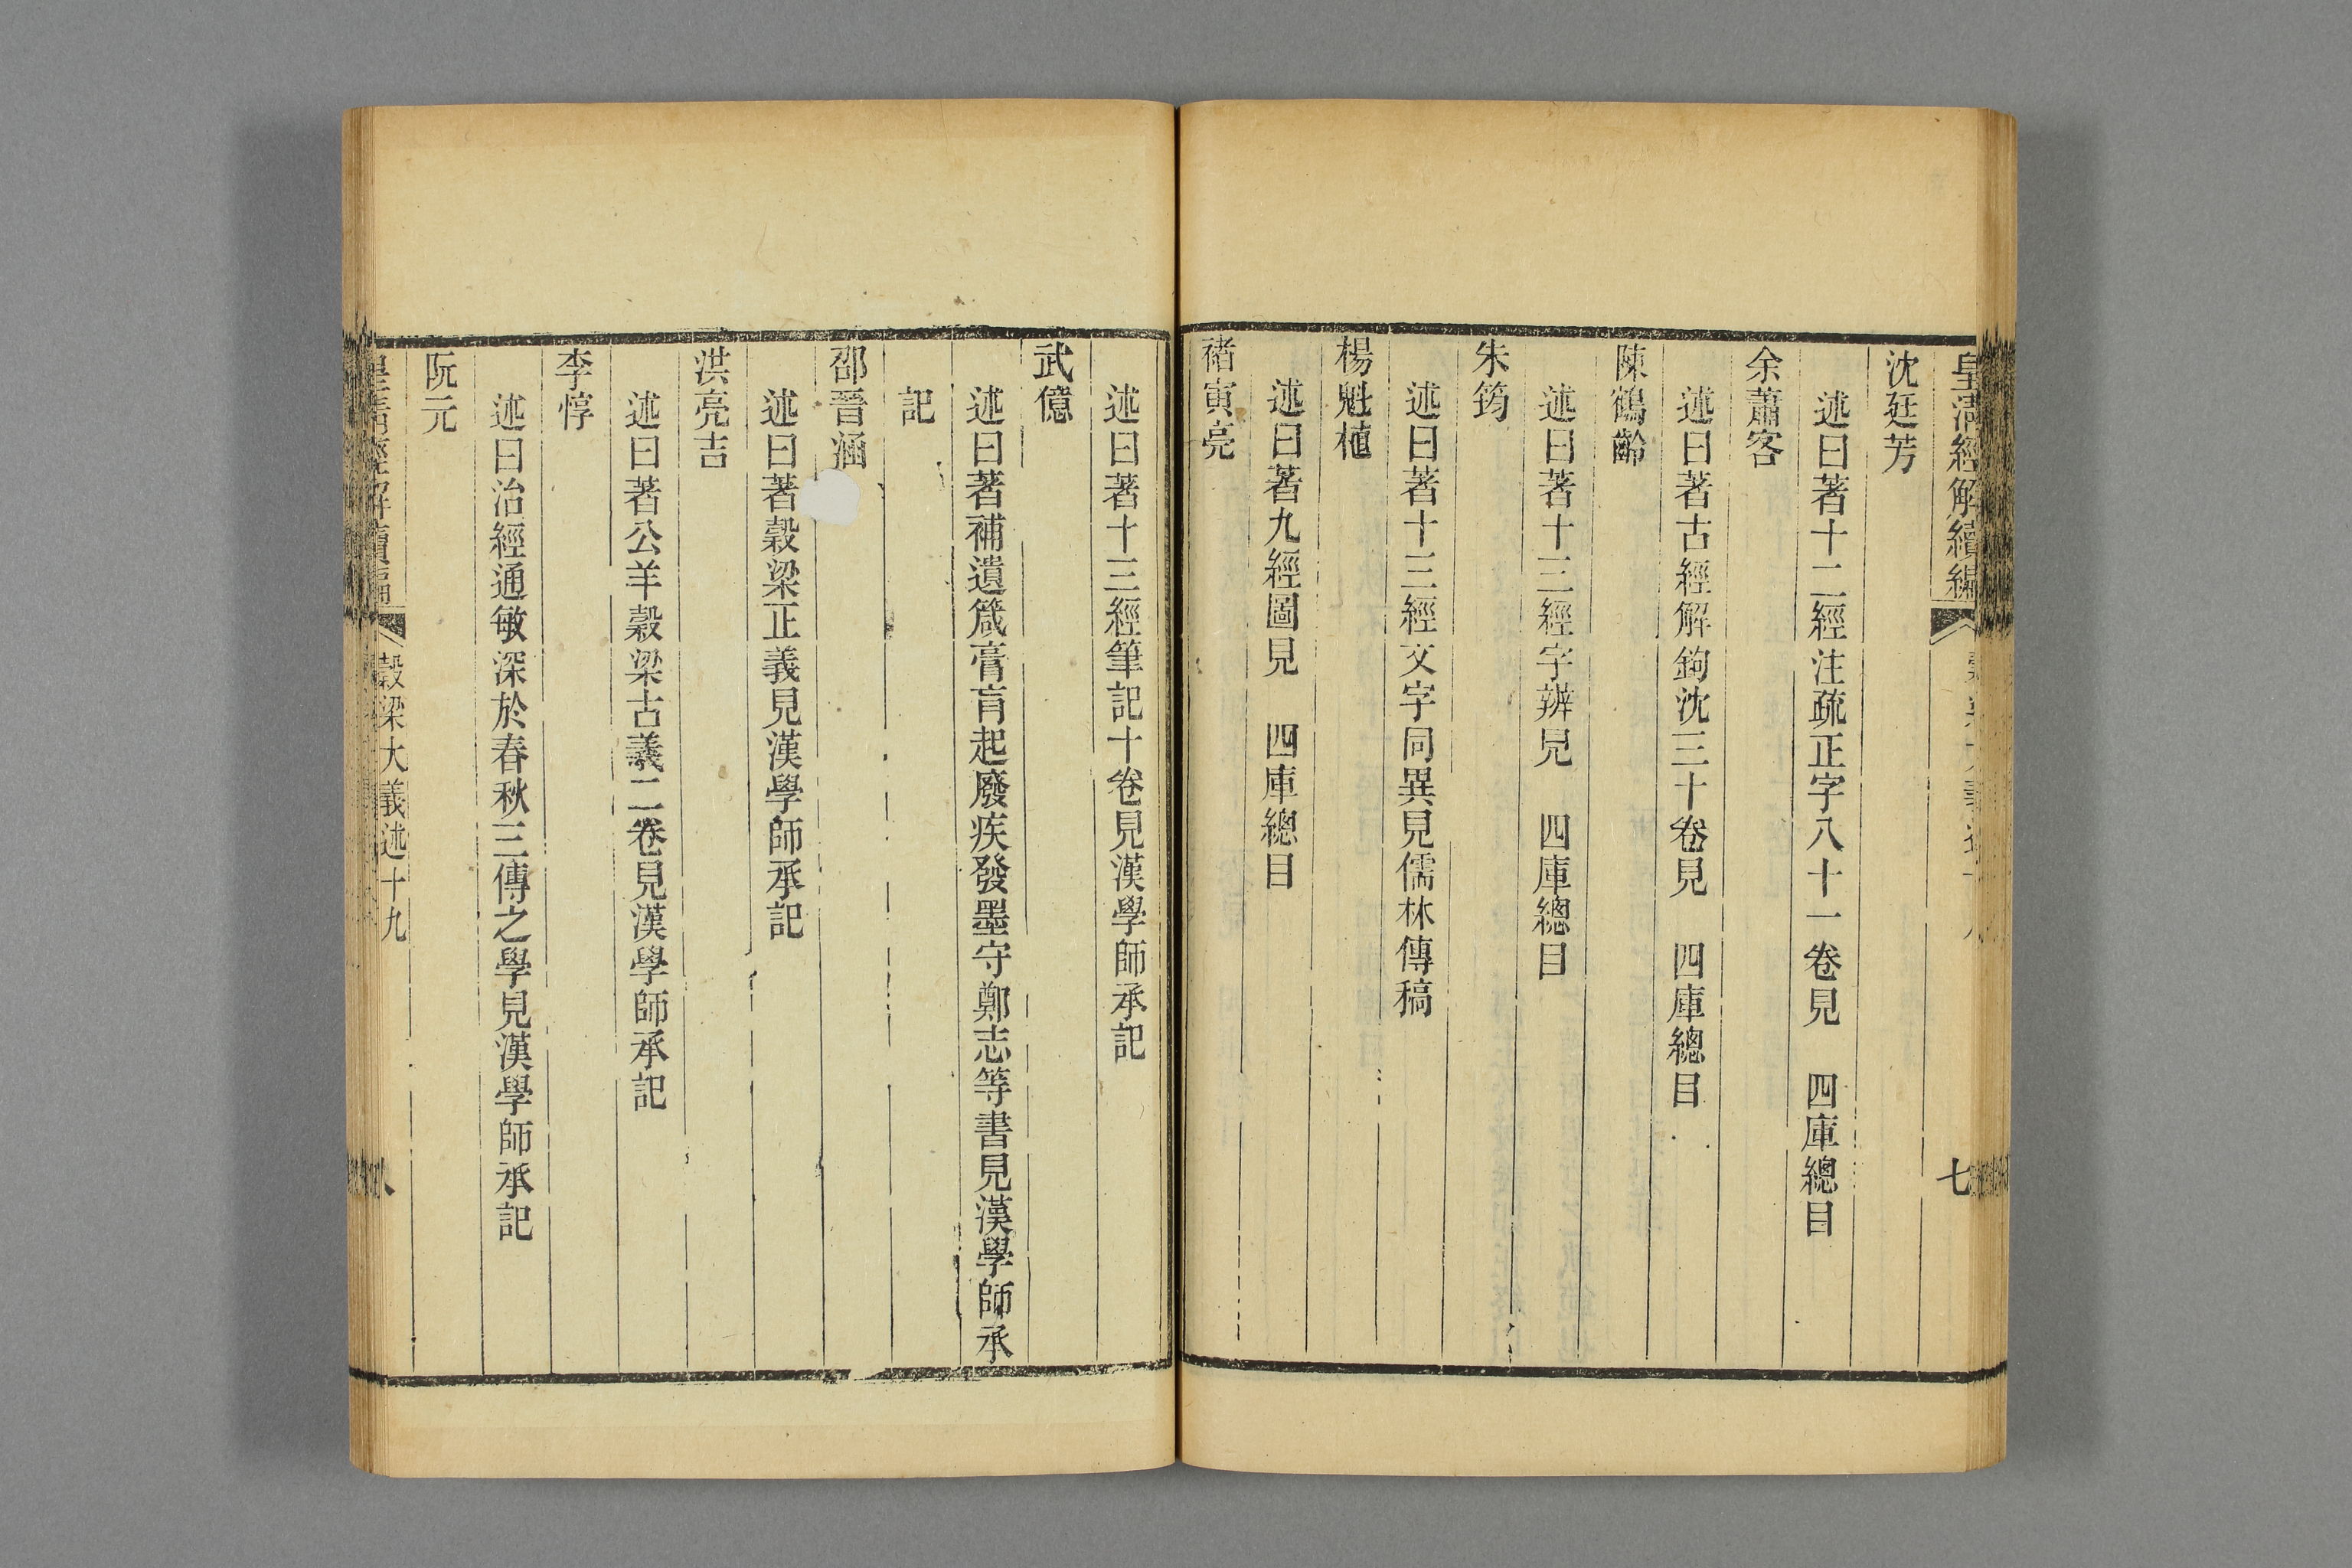 皇清經解續編
七
沈廷芳
述曰著十二經注疏正字八十一卷見　四庫總目
余蕭客
述曰著古經解鉤沈三十卷見　四庫總目
陳鶴齡
述曰著十三經字辨見　四庫總目
朱筠
述曰著十三經文字同異見儒林傳稿
楊魁植
述曰著九經圖見　四庫總目
褚寅亮
述曰著十三經筆記十卷見漢學師承記
武億
述曰著補遺箴膏肓起廢疾發墨守鄭志等書見漢學師承
記
邵晉涵
述曰著穀梁正義見漢學師承記
洪亮吉
述曰著公羊穀梁古義二卷見漢學師承記
李惇
述曰治經通敏深於春秋三傳之學見漢學師承記
阮元
皇清經解續編　穀梁大義述十九　八